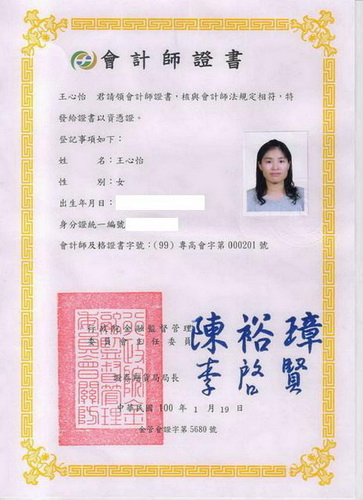 會計師證書
王心怡 君請領會計師證書，核與會計師法規定相符，特
發給證書以資憑證。
登記事項如下：
姓名：王心怡
性別：女
出生年月日：
身分證統一編號
會計師及格證書字號：(99) 專高會字第 000201 號
行政院金融監督管理
委員會主任委員
陳裕璋
證券期貨局局長
李啓賢
中華民國 100 年 1 月 19 日
金管會證字第 5680 號